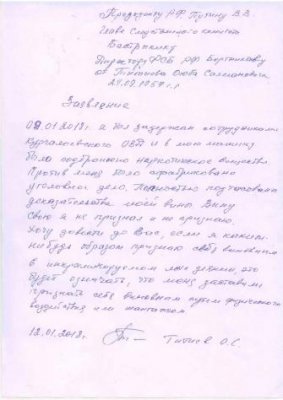 Президенту РФ Путину В.В.
Главе Следственного комитета
Бастрыкину
Директору ФСБ РФ Бортникову
от Титиева Оюба Салмановича
24.08.1957 г.р
Заявление
09.01.2018г. я был задержан сотрудниками
Курчалоевского ОВД и в мою машину
было подброшено наркотическое вещество.
Против меня было сфабриковано
уголовное дело. Полностью подтасованы
доказательства моей вины. Вину
свою я не признал и не признаю.
Хочу довести до Вас, если я каким-
нибудь образом признаю себя виновным
в инкриминируемом мне деянии, это
будет означать, что меня заставили
признать себя виновным путем физического
воздействия или шантажом
12.01.2018. Титиев О.С.